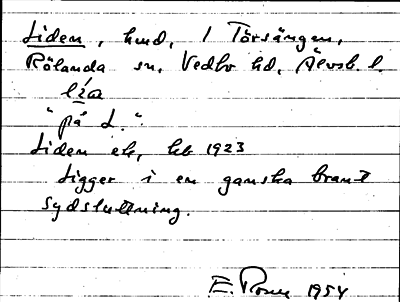 Liden, hmd, / Torsängen,
Rölanda sn, Vedbo hd, Älvsb. l.
lía
"på L.".
Liden ek, kb 1923
Ligger i en ganska brant
sydsluttning.
E. 1954